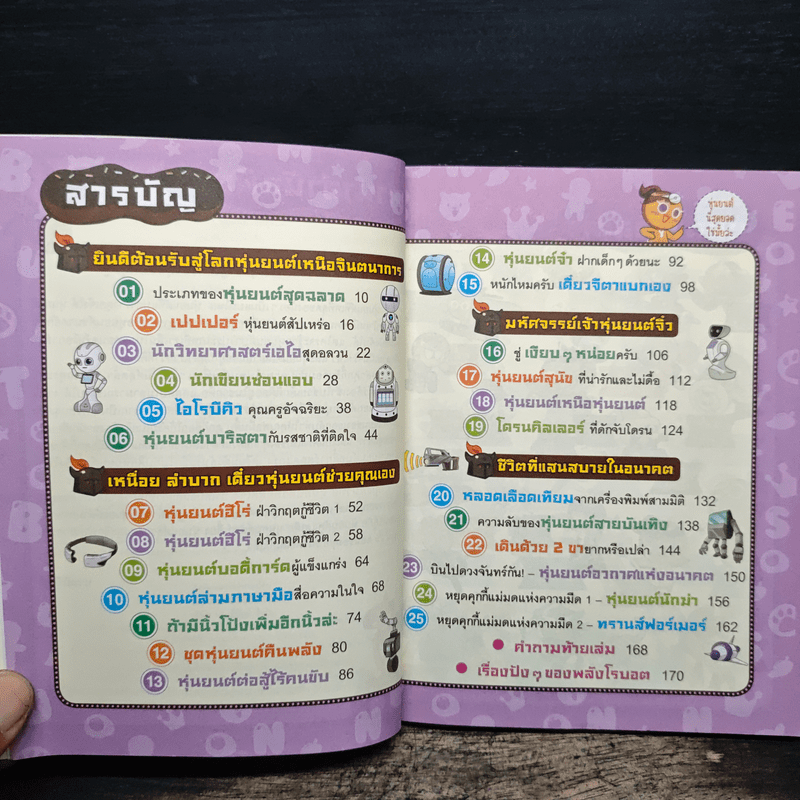 สารบัญ
ยินดีต้อนรับสู่โลกหุ่นยนต์เหนือจินตนาการ
01 ประเภทของหุ่นยนต์สุดฉลาด 10
02 เปปเปอร์ หุ่นยนต์สัปเหร่อ 16
03 นักวิทยาศาสตร์เอไอสุดอลวน 22
04 นักเขียนซ่อนแอบ 28
05 ไอโรบีคิว คุณครูอัจฉริยะ 38
06 หุ่นยนต์บาริสตากับรสชาติที่ติดใจ 44
เหนื่อย ลำบาก เดี๋ยวหุ่นยนต์ช่วยคุณเอง
07 หุ่นยนต์ฮีโร่ ฝ่าวิกฤตกู้ชีวิต 1 52
08 หุ่นยนต์ฮีโร่ ฝ่าวิกฤตกู้ชีวิต 2 58
09 หุ่นยนต์บอดี้การ์ดผู้แข็งแกร่ง 64
10 หุ่นยนต์ล่ามภาษามือสื่อความในใจ 68
11 ถ้ามีนิ้วโป้งเพิ่มอีกนิ้วล่ะ 74
12 ชุดหุ่นยนต์คืนพลัง 80
13 หุ่นยนต์ต่อสู้ไร้คนขับ 86
หุ่นยนต์
นี่สุดยอด
ใช่มั้ยล่ะ
14 หุ่นยนต์จ๋า ฝากเด็กๆ ด้วยนะ 92
15 หนักไหมครับ เดี๋ยวจีตาแบกเอง 98
มหัศจรรย์เจ้าหุ่นยนต์จิ๋ว
16 ชู่ เงียบๆ หน่อยครับ 106
17 หุ่นยนต์สุนัข ที่น่ารักและไม่ดื้อ 112
18 หุ่นยนต์เหนือหุ่นยนต์ 118
19 โดรนคิลเลอร์ ที่ดักจับโดรน 124
ชีวิตที่แสนสบายในอนาคต
20 หลอดเลือดเทียมจากเครื่องพิมพ์สามมิติ 132
21 ความลับของหุ่นยนต์สายบันเทิง 138
22 เดินด้วย 2 ขายากหรือเปล่า 144
23 บินไปดวงจันทร์กัน! – หุ่นยนต์อวกาศแห่งอนาคต 150
24 หยุดคุกกี้แม่มดแห่งความมืด 1 – หุ่นยนต์นักฆ่า 156
25 หยุดคุกกี้แม่มดแห่งความมืด 2 – ทรานส์ฟอร์เมอร์ 162
คำถามท้ายเล่ม 168
เรื่องปังๆ ของพลังโรบอต 170